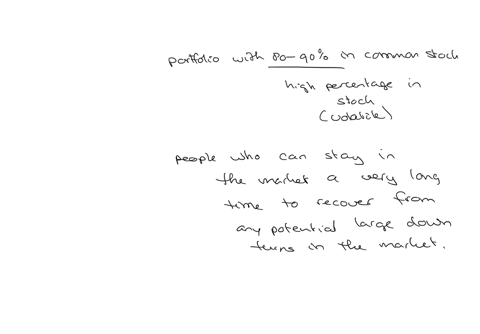 portfolio with 80-90% in common stock
high percentage in
stock
(volatile)
people who can stay in
the market a very long
time to recover from
any potential large down
turns in the market.